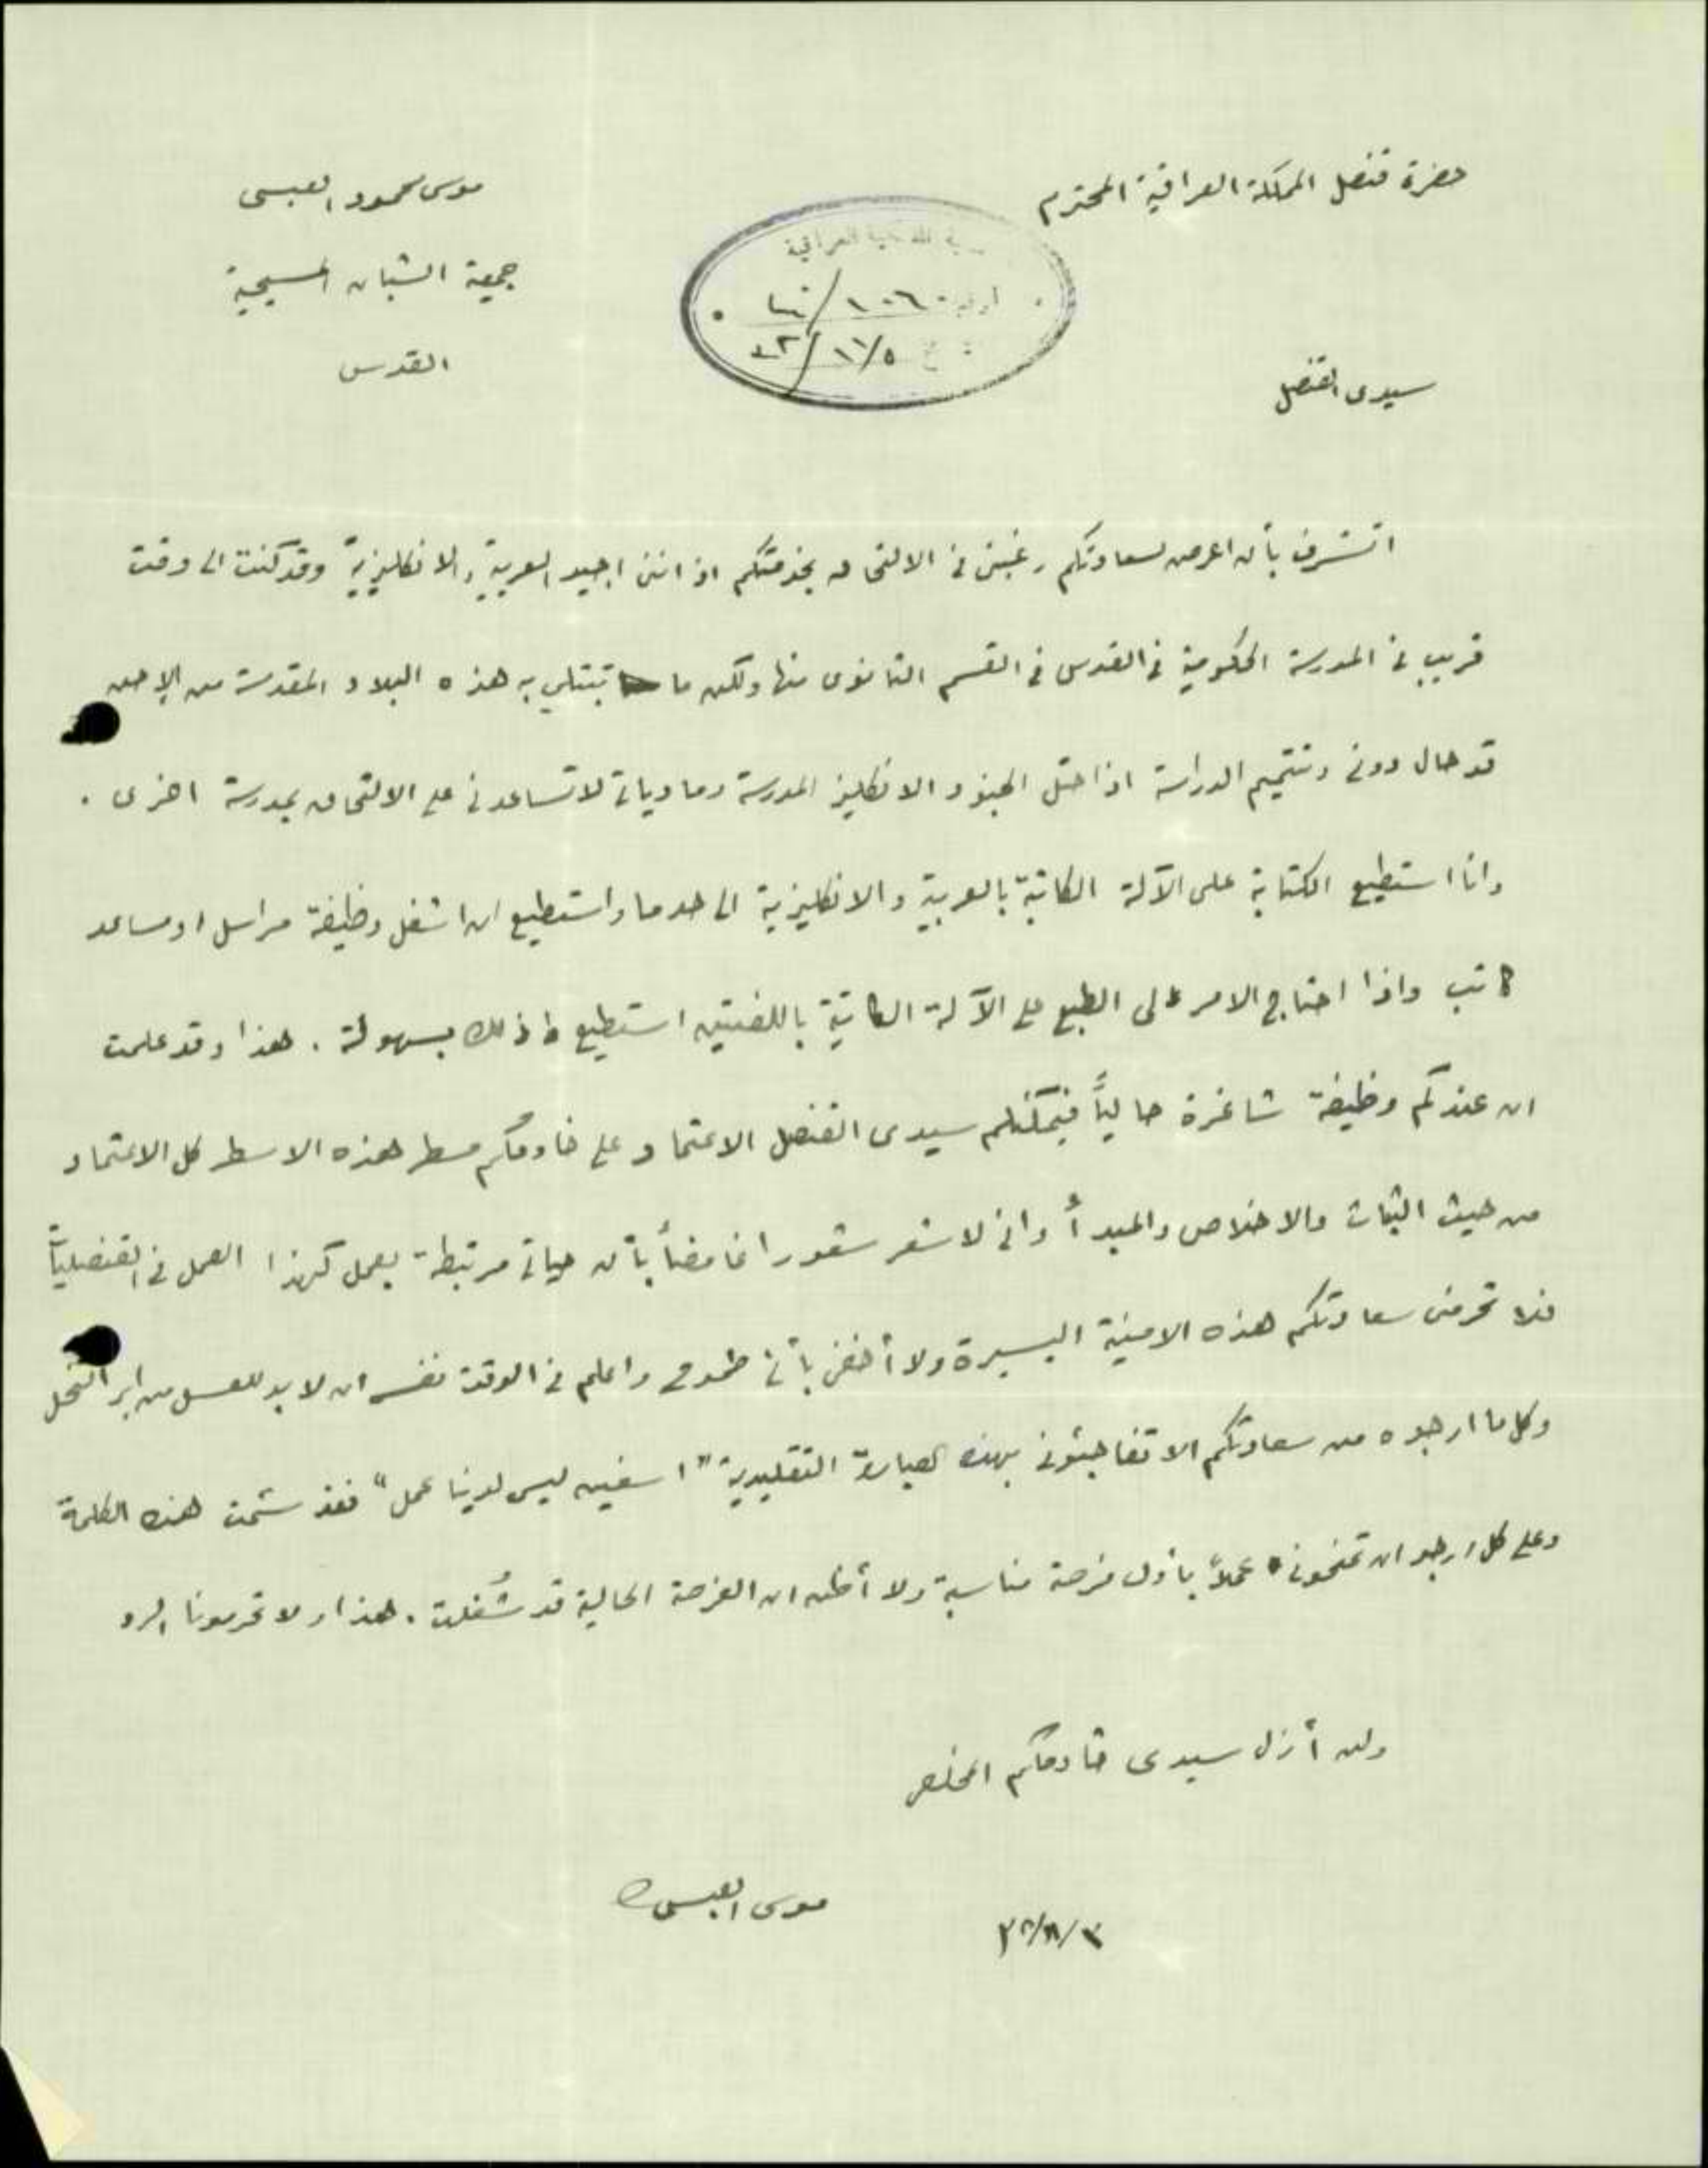 حضرة قنصل المملكة العراقية المحترم
موسى محمود العبسى
جمعية الشبان المسيحية
القدس
العراقية
١٠٠٦
١١/٥
سيدى القنصل
اتشرف بأن اعرض لسعادتكم رغبتى فى الالتحاق بخدمتكم اذ اننى اجيد العربية والانكليزية وقد كنت الى وقت
قريب فى المدرسة الحكومية فى القدس فى القسم الثانوى منها ولكن ما تبتلى به هذه البلاد المقدسة من الإحن
قد حال دونى وتتميم الدراسة اذ احتل الجنود الانكليز المدرسة وماديات لا تساعدنى على الالتحاق بمدرسة اخرى .
وانا استطيع الكتابة على الآلة الكاتبة بالعربية والانكليزية الى حد ما واستطيع ان اشغل وظيفة مراسل او مساعد
كاتب واذا احتاج الامر الى الطبع على الآلة الكاتبة باللغتين استطيع ذلك بسهولة . هذا وقد علمت
ان عندكم وظيفة شاغرة حالياً فيمكنكم سيدى القنصل الاعتماد على خادمكم مسطر هذه الاسطر كل الاعتماد
من حيث الثبات والاخلاص والمبدأ وانى لاشعر شعورا غامضاً بأن حياتى مرتبطة بعمل كهذا العمل فى القنصليات
فلا تحرمنى سعادتكم هذه الامنية اليسيرة ولا أخفى بأنى طموح واعلم فى الوقت نفسه ان لا بد للعسل من إبر النحل
وكل ما ارجوه من سعادتكم الا تفاجئونى بهذه العبارة التقليدية "اسفين ليس لدينا عمل" فقد سئمت هذه الكلمة
وعلى كل ارجو ان تمنحونى عملاً بأول فرصة مناسبة ولا أظن ان الفرصة الحالية قد شُغلت . هذا ولا تحرمونا الرد
ولن أزل سيدى خادمكم المخلص
موسى العبسى